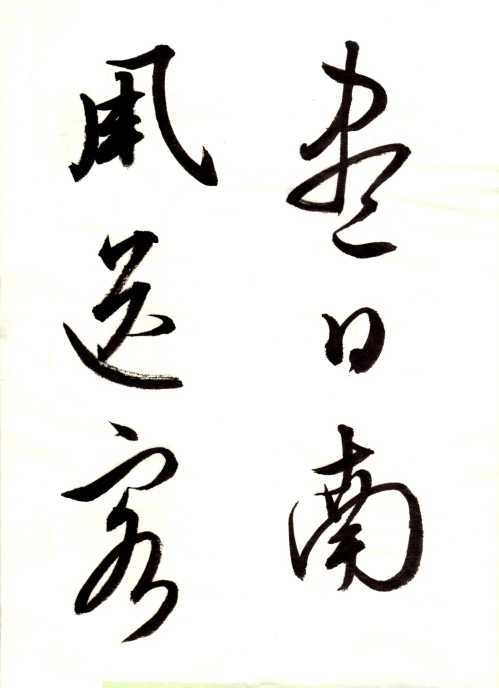 盡日南
風送客